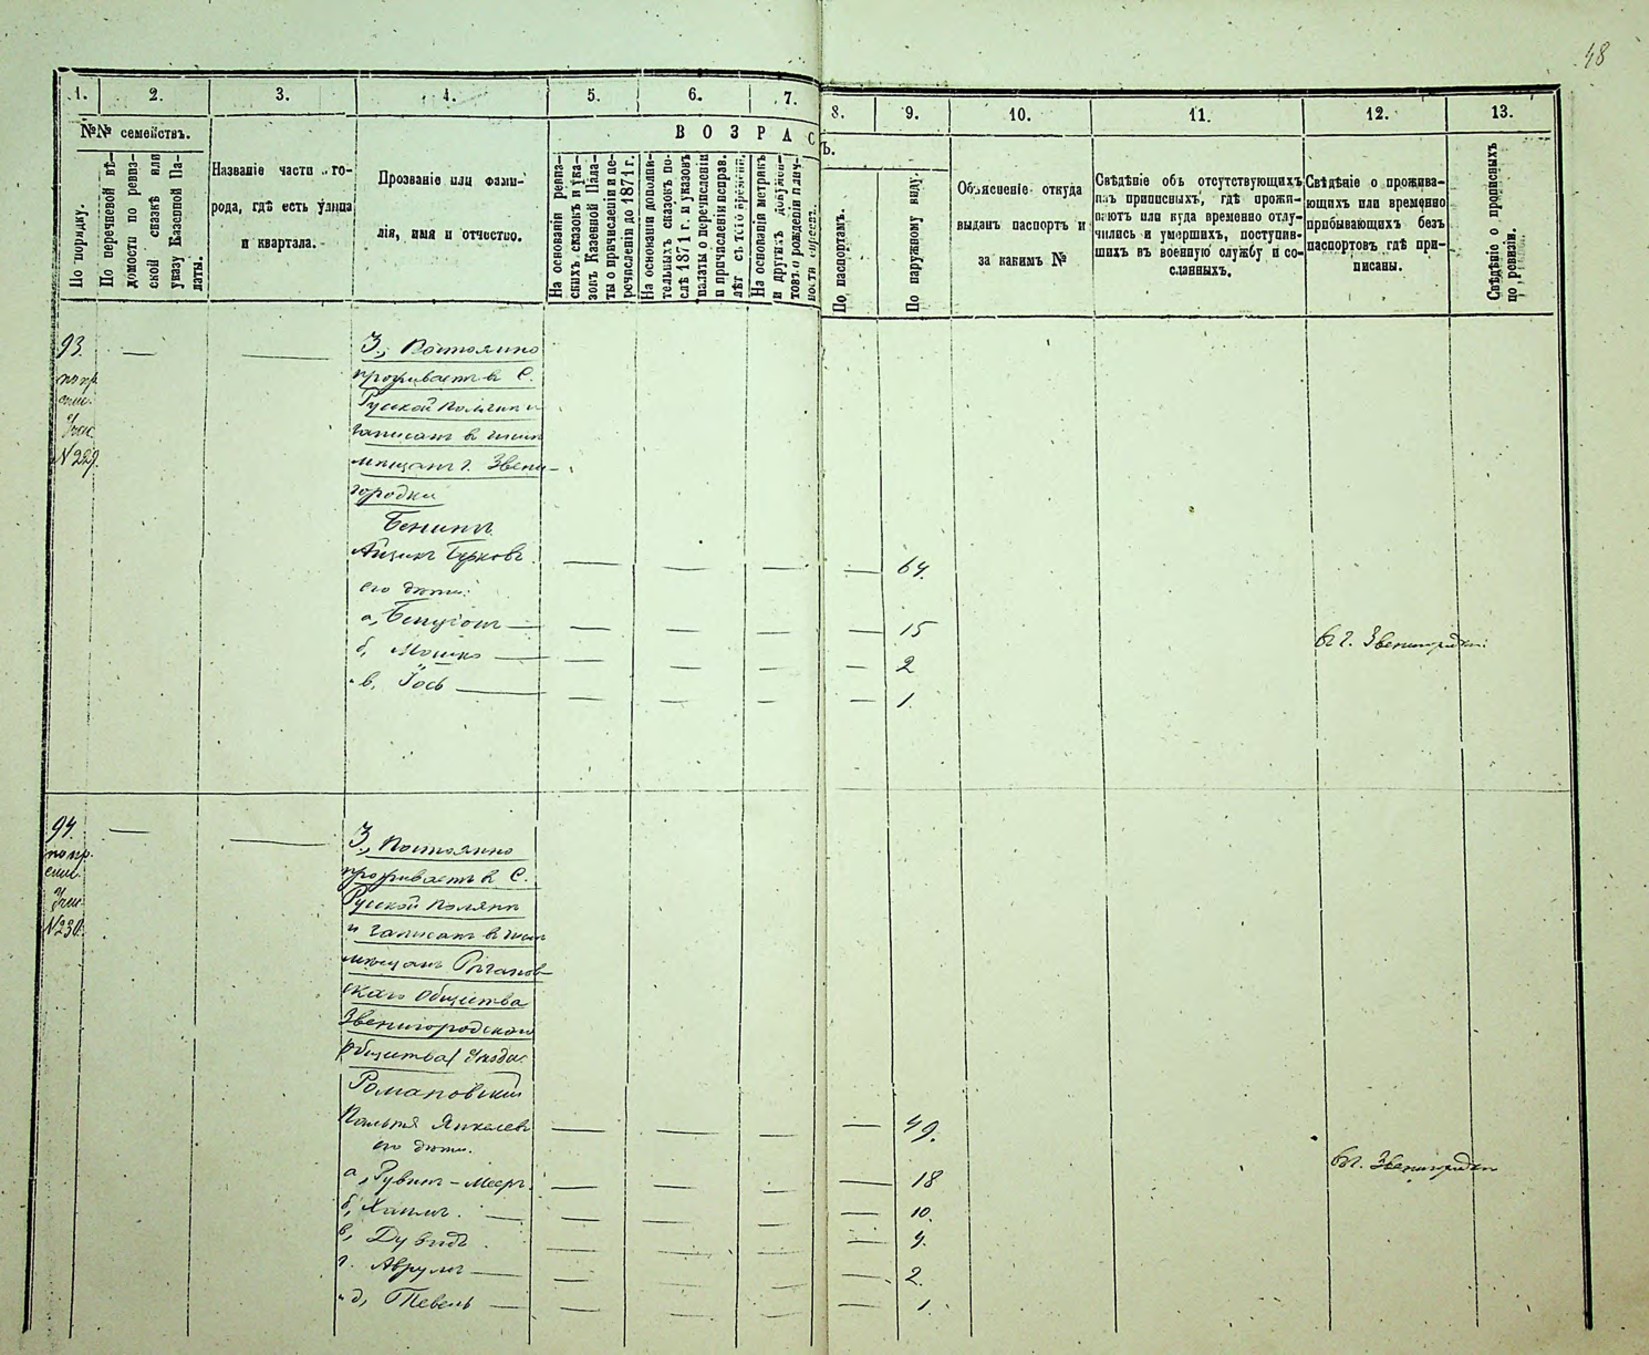 48
1. 2. 3. 4. 5. 6. 7. 8. 9. 10. 11. 12. 13.
№№ семействъ.
По порядку.
По перечневой вѣ-
домости по ревиз-
ской сказкѣ или
указу Казенной Па-
латы.
Названіе части го-
рода, гдѣ есть улица
и квартала.
Прозваніе или фами-
лія, имя и отчество.
ВОЗРАС
Ъ.
На основаніи ревиз-
скихъ сказокъ и ука-
зовъ Казенной Пала-
ты о причисленіи и пе-
речисленіи до 1871 г.
На основаніи дополни-
тельныхъ сказокъ по-
слѣ 1871 г. и указовъ
палаты о перечисленіи
и причисленіи исправ.
лѣт съ того времени.
На основаніи метрикъ
и другихъ докумен-
товъ о рожденіи
По паспортамъ.
По наружному виду.
Объясненіе откуда
выданъ паспортъ и
за какимъ №
Свѣдѣніе объ отсутствующихъ
изъ приписныхъ, гдѣ прожи-
ваютъ или куда временно отлу-
чились и умершихъ, поступив-
шихъ въ военную службу и со-
сланныхъ.
Свѣдѣніе о прожива-
ющихъ или временно
прибывающихъ безъ
паспортовъ гдѣ при-
писаны.
Свѣдѣніе о прописныхъ
по ревизіи.
93.
по пр.
№229.
3, Постоянно
проживаетъ в С.
Русской Полянѣ и
записанъ въ числѣ
мѣщанъ г. Звени-
городки
Бенинъ
Айзикъ Берковъ 64.
его дѣти:
а, Бенціонъ 15
б, Мошко 2
в, Іось 1.
въ г. Звенигородки
94.
по пр.
№230.
3, Постоянно
проживаетъ в С.
Русской Полянѣ
и записанъ въ числѣ
мѣщанъ Рызанов-
скаго Общества
Звенигородскаго
Романовскій
Янкелевъ 49.
его дѣти.
а, Рувинъ-Мееръ 18
б, Хаимъ. 10.
в, Дувидъ. 4.
г. Аврумъ 2.
д, Тевель 1.
въ г. Звенигородки